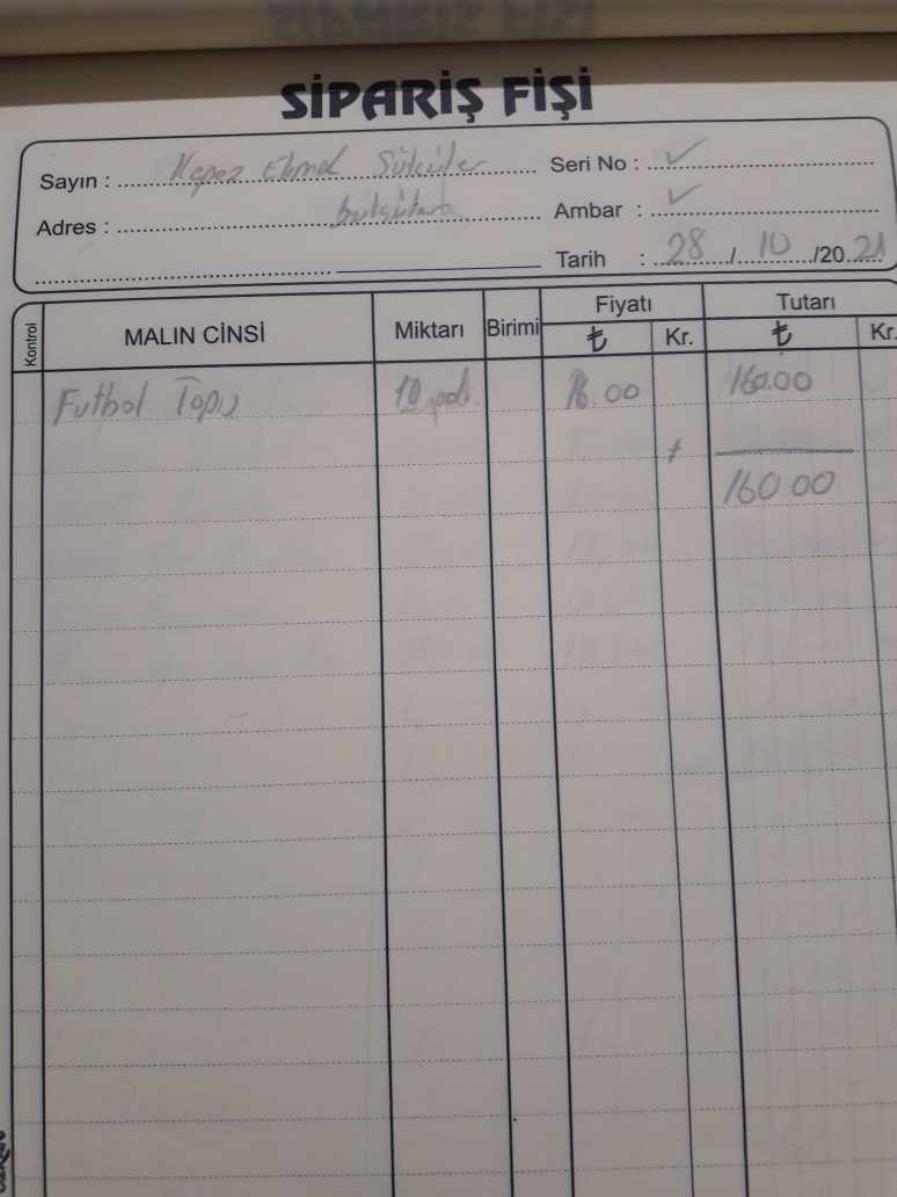 SİPARİŞ FİŞİ
Sayın : Kepez Sütçüler
Seri No : ✓
Adres :
Ambar : ✓
Tarih : 28 / 10 /20 21
Kontrol MALIN CİNSİ Miktarı Birimi Fiyatı Tutarı
₺ Kr. ₺ Kr.
Futbol Topu 10 16.00 160.00
+
160 00